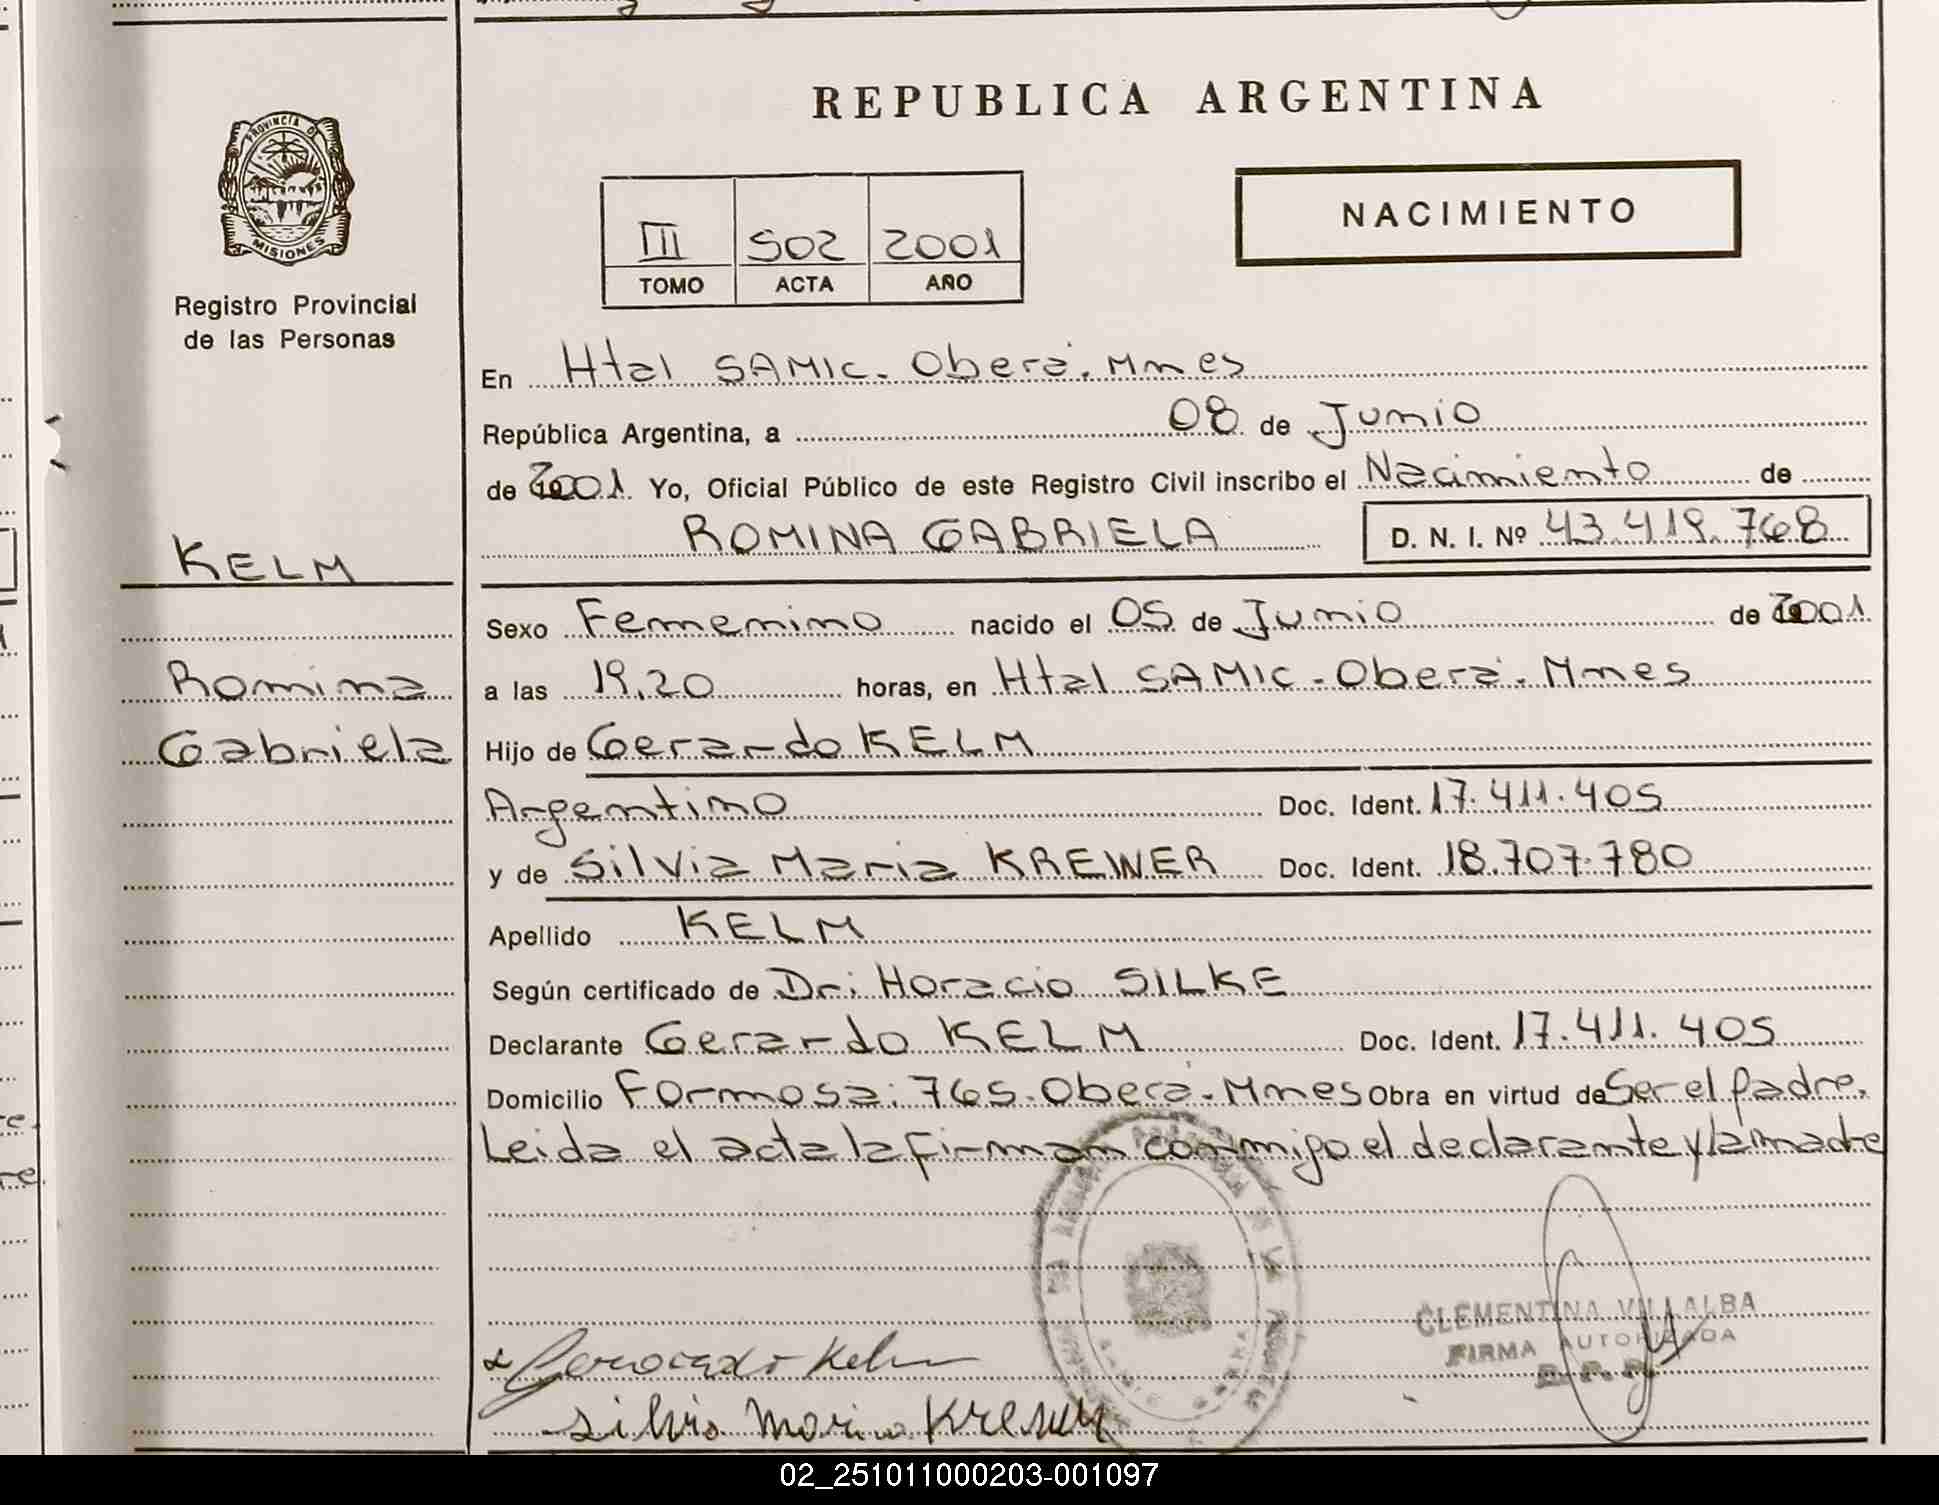 REPUBLICA ARGENTINA
PROVINCIA DE
MISIONES
Registro Provincial
de las Personas
NACIMIENTO
III 502 2001
TOMO ACTA AÑO
En Htal SAMIC. Oberá. Mnes
República Argentina, a 08 de Junio
de 2001. Yo, Oficial Público de este Registro Civil inscribo el Nacimiento de
ROMINA GABRIELA D. N. I. Nº 43.419.768
KELM
Romina
Gabriela
Sexo Femenino nacido el 05 de Junio de 2001
a las 19.20 horas, en Htal SAMIC. Oberá. Mnes
Hijo de Gerardo KELM
Argentino Doc. Ident. 17.411.405
y de Silvia Maria KREWER Doc. Ident. 18.707.780
Apellido KELM
Según certificado de Dr: Horacio SILKE
Declarante Gerardo KELM Doc. Ident. 17.411.405
Domicilio Formosa: 765. Oberá. Mnes Obra en virtud de Ser el padre.
Leida el acta la firman conmigo el declarante y la madre
CLEMENTINA VILLALBA
FIRMA AUTORIZADA
Gerardo Kelm
Silvia Maria Krewer
02_251011000203-001097